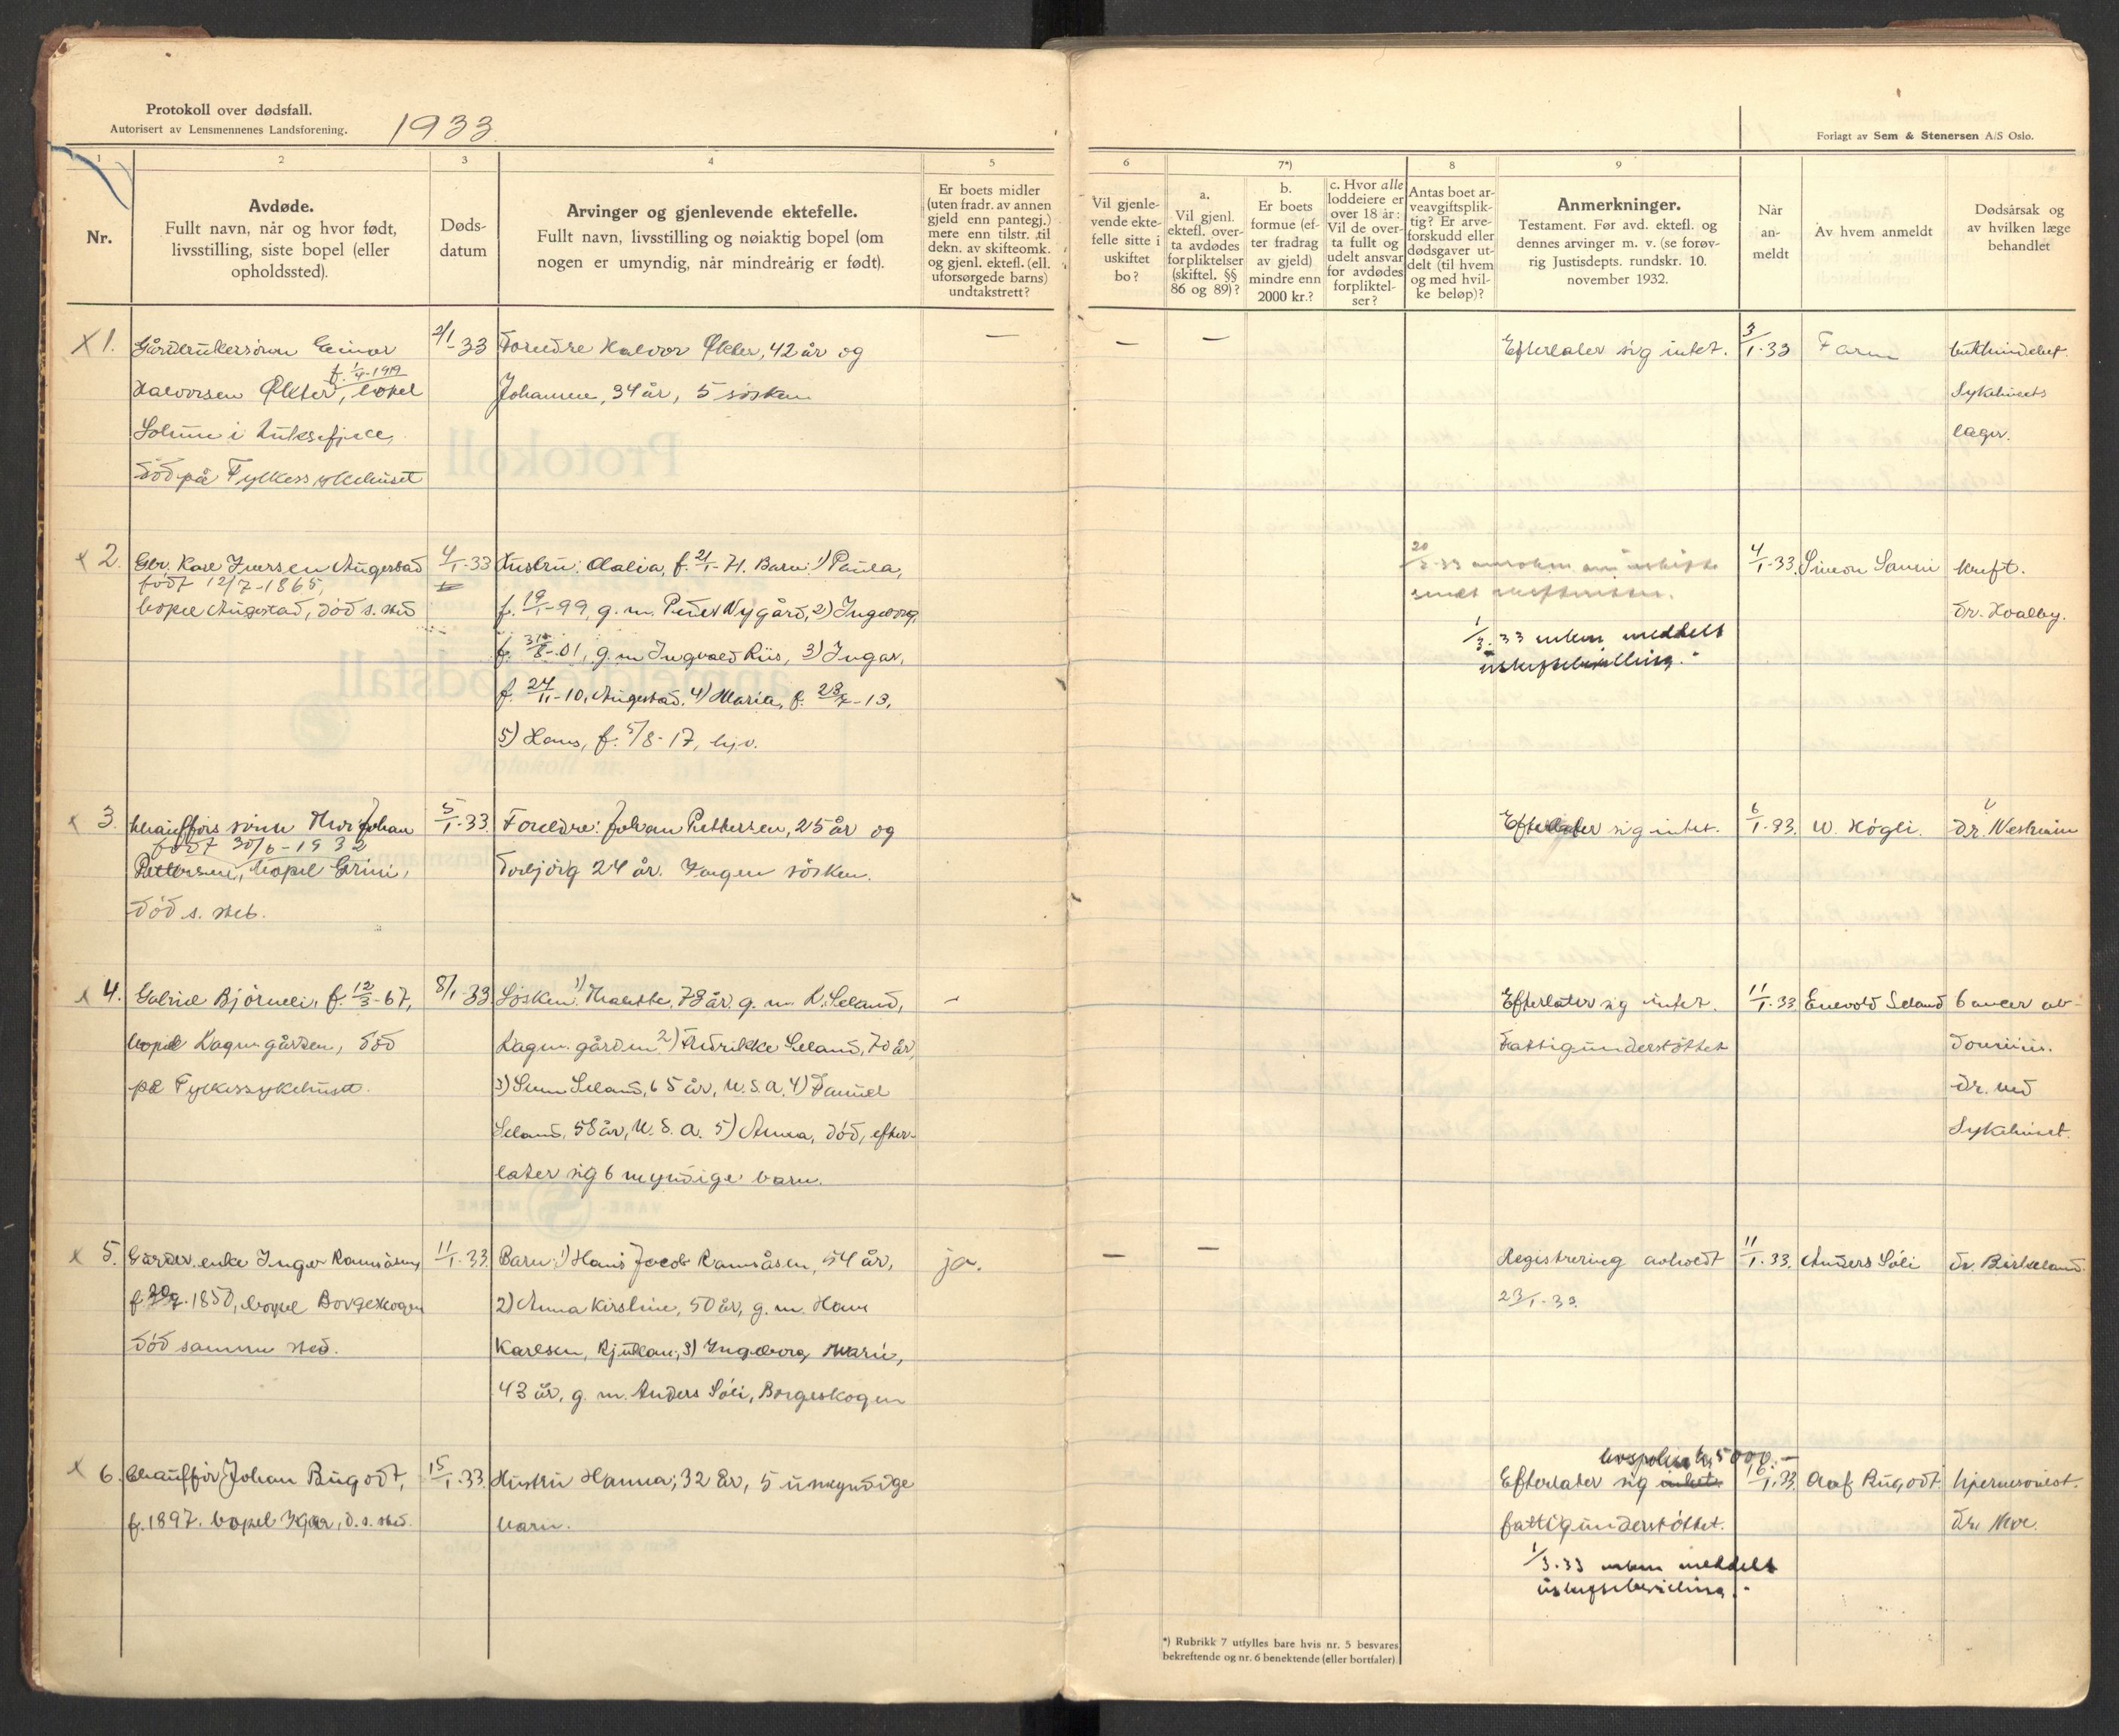 Protokoll over dødsfall.
Autorisert av Lensmennenes Landsforening.
1933
Forlagt av Sem & Stenersen A/S Oslo.
1
2
3
4
5
6
7*)
8
9
Nr.
Avdøde.
Fullt navn, når og hvor født,
livsstilling, siste bopel (eller
opholdssted).
Døds-
datum
Arvinger og gjenlevende ektefelle.
Fullt navn, livsstilling og nøiaktig bopel (om
nogen er umyndig, når mindreårig er født).
Er boets midler
(uten fradr. av annen
gjeld enn pantegj.)
mere enn tilstr. til
dekn. av skifteomk.
og gjenl. ektefl. (ell.
uforsørgede barns)
undtakstrett?
Vil gjenle-
vende ekte-
felle sitte i
uskiftet
bo?
a.
Vil gjenl.
ektefl. over-
ta avdødes
forpliktelser
(skiftel. §§
86 og 89)?
b.
Er boets
formue (ef-
ter fradrag
av gjeld)
mindre enn
2000 kr.?
c. Hvor alle
loddeiere er
over 18 år:
Vil de over-
ta fullt og
udelt ansvar
for avdødes
forpliktel-
ser?
Antas boet ar-
veavgiftsplik-
tig? Er arve-
forskudd eller
dødsgaver ut-
delt (til hvem
og med hvil-
ke beløp)?
Anmerkninger.
Testament. Før avd. ektefl. og
dennes arvinger m. v. (se forøv-
rig Justisdepts. rundskr. 10.
november 1932.
Når
an-
meldt
Av hvem anmeldt
Dødsårsak og
av hvilken læge
behandlet
X 1.
Einar
f. 1/4-1919
Halvorsen Økter, bopel
Solum i
död på Fylkessykehuset
2/1-33
Foreldre Halvor Økter, 42 år og
Johanne, 34 år, 5 søsken
—
—
—
Efterlater sig intet.
3/1-33
Farm
Sykehusets
læger.
x 2.
Gbr. Karl Iversen Augestad
født 12/7-1865,
bopel Augestad, död s. sted
4/1-33
Hustru: Olalia, f. 21/1-71. Barn: 1) Paula,
f. 19/1-99, g. m. Peder Nygård, 2) Ingeborg,
f. 31/8-01, g. m Ingvald Riis, 3) Ingar,
f. 24/11-10, Augestad. 4) Maria, f. 23/7-13,
5) Hans, f. 5/8-17, hjv.
1/3.33 enken meddelt
uskiftebevilling.
4/1-33.
Simon
kreft.
dr. Hvalby.
x 3.
chaufførs sønn Thor Johan
født 30/6-1932
Pettersen, bopel Grini,
död s. sted.
5/1-33.
Foreldre: Johan Pettersen, 25 år og
Torbjörg 24 år. Ingen søsken.
Efterlater sig intet.
6/1-33.
W. Högli.
dr. Westrum
x 4.
Gabriel Björnli, f. 12/3-67,
bopel gården, död
på Fylkessykehuset.
8/1-33.
Søsken: 1) år. g. m. K. Seland,
gården 2) Fredrikke Seland, 70 år,
3) Seland, 65 år, U.S.A. 4) Daniel
Seland, 58 år, U.S.A. 5) Anna, död, efter-
later sig 6 myndige barn.
—
Efterlater sig intet.
Fattigunderstöttet
11/1-33
Enevold Seland
dr. ved
Sykehuset.
x 5.
Gårdbr. enke Inger Ramsåsen,
1850, bopel Borgeskogen
død samme sted.
11/1-33.
Barn: 1) Hans Jacob Ramsåsen, 54 år,
2) Anna Kirstine, 50 år, g. m. Hans
Karlsen, Rjukan, 3) Ingeborg Marie,
43 år, g. m. Anders Sóli, Borgeskogen
ja.
—
—
Registrering avholdt
23/1-33.
11/1-33.
Anders Sóli
dr. Birkeland.
x 6.
Chauffør Johan Rugodt,
f. 1897. bopel d. s. sted.
15/1-33.
Hustru Hanna, 32 år, 5 umyndige
barn.
livspolise kr. 5000.—
Efterlater sig intet
fattigunderstöttet.
1/3.33 enken meddelt
uskiftebevilling.
16/1.33.
Olaf Rugodt.
hjernesvulst.
dr. Moe.
*) Rubrikk 7 utfylles bare hvis nr. 5 besvares
bekreftende og nr. 6 benektende (eller bortfaler).